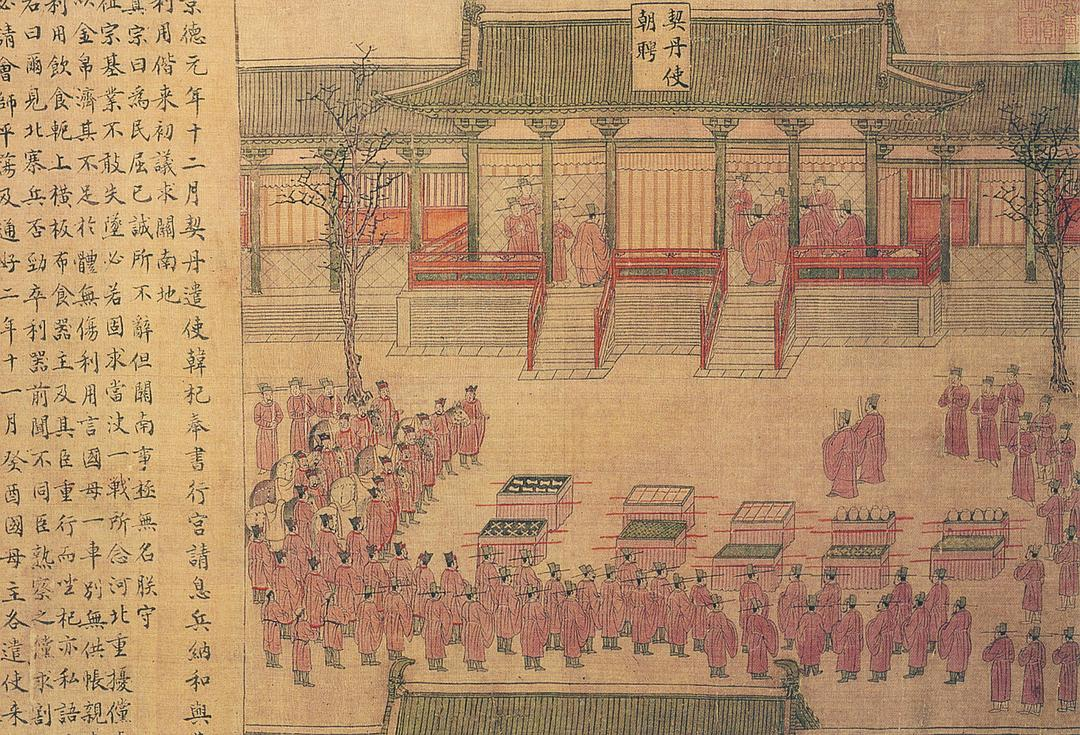 契丹使
朝聘
景德元年十二月契丹遣使韓杞奉書行宮請息兵納和與
利用偕來初議求關南地
真宗曰為民屈己誠所不辭但關南事極無名朕守
祖宗基業不敢失墜必若固求當決一戰所念河北重擾儻
以金帛濟其不足於體無傷利用言國母一車別無供帳親
利用飲食軛上橫板布食器主及其臣重行而坐杞亦私語
若曰爾見北寨兵否勁卒利器前聞不同臣熟察之儻求割
必請會師平蕩及通好二年十一月癸酉國母主各遣使来